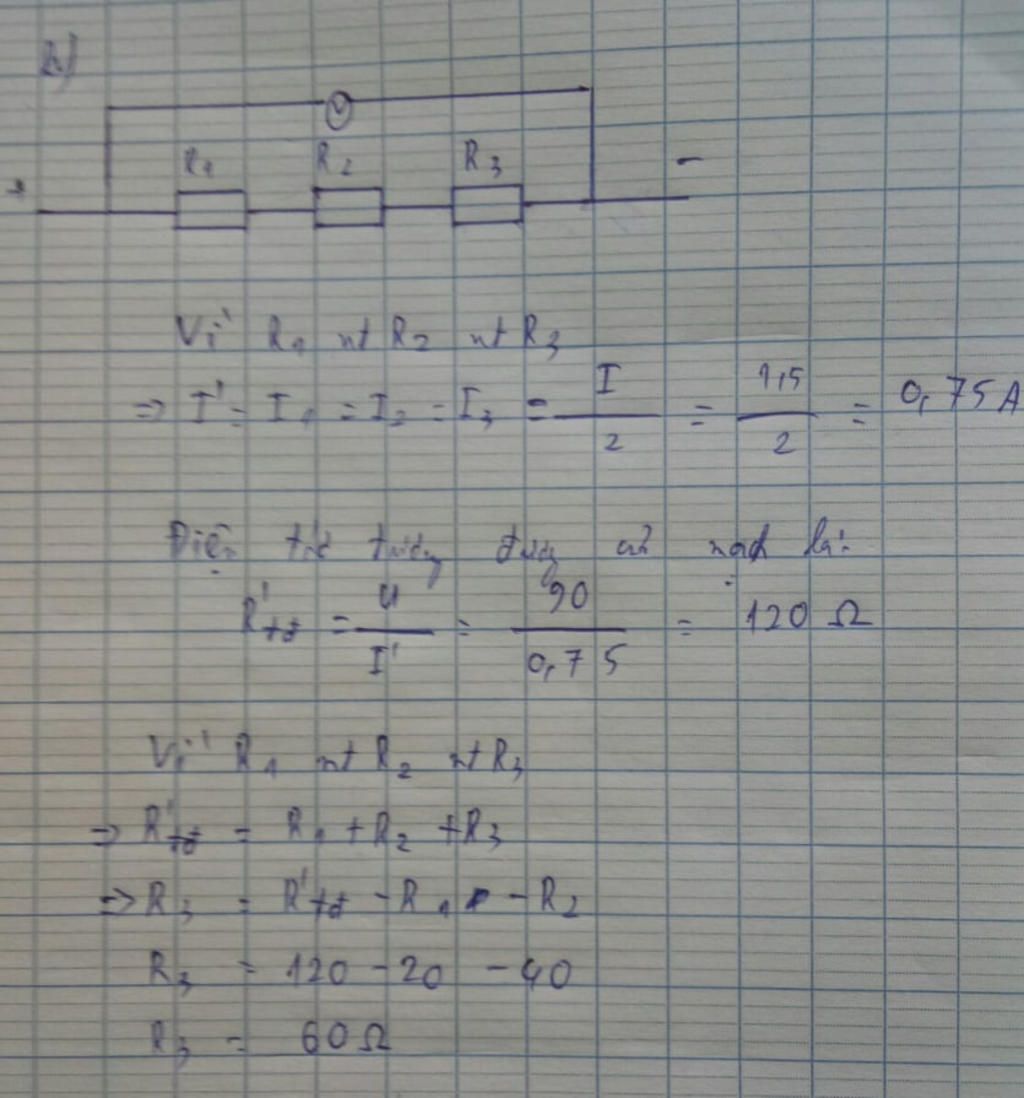 b)
V
R1 R2 R3
+ -
Vì R1 nt R2 nt R3
=> I' = I1 = I2 = I3 = I/2 = 1,5/2 = 0,75A
Điện trở tương đương của mạch là:
R'tđ = U/I' = 90/0,75 = 120 Ω
Vì R1 nt R2 nt R3
=> R'tđ = R1 + R2 + R3
=> R3 = R'tđ - R1 - R2
R3 = 120 - 20 - 40
R3 = 60 Ω